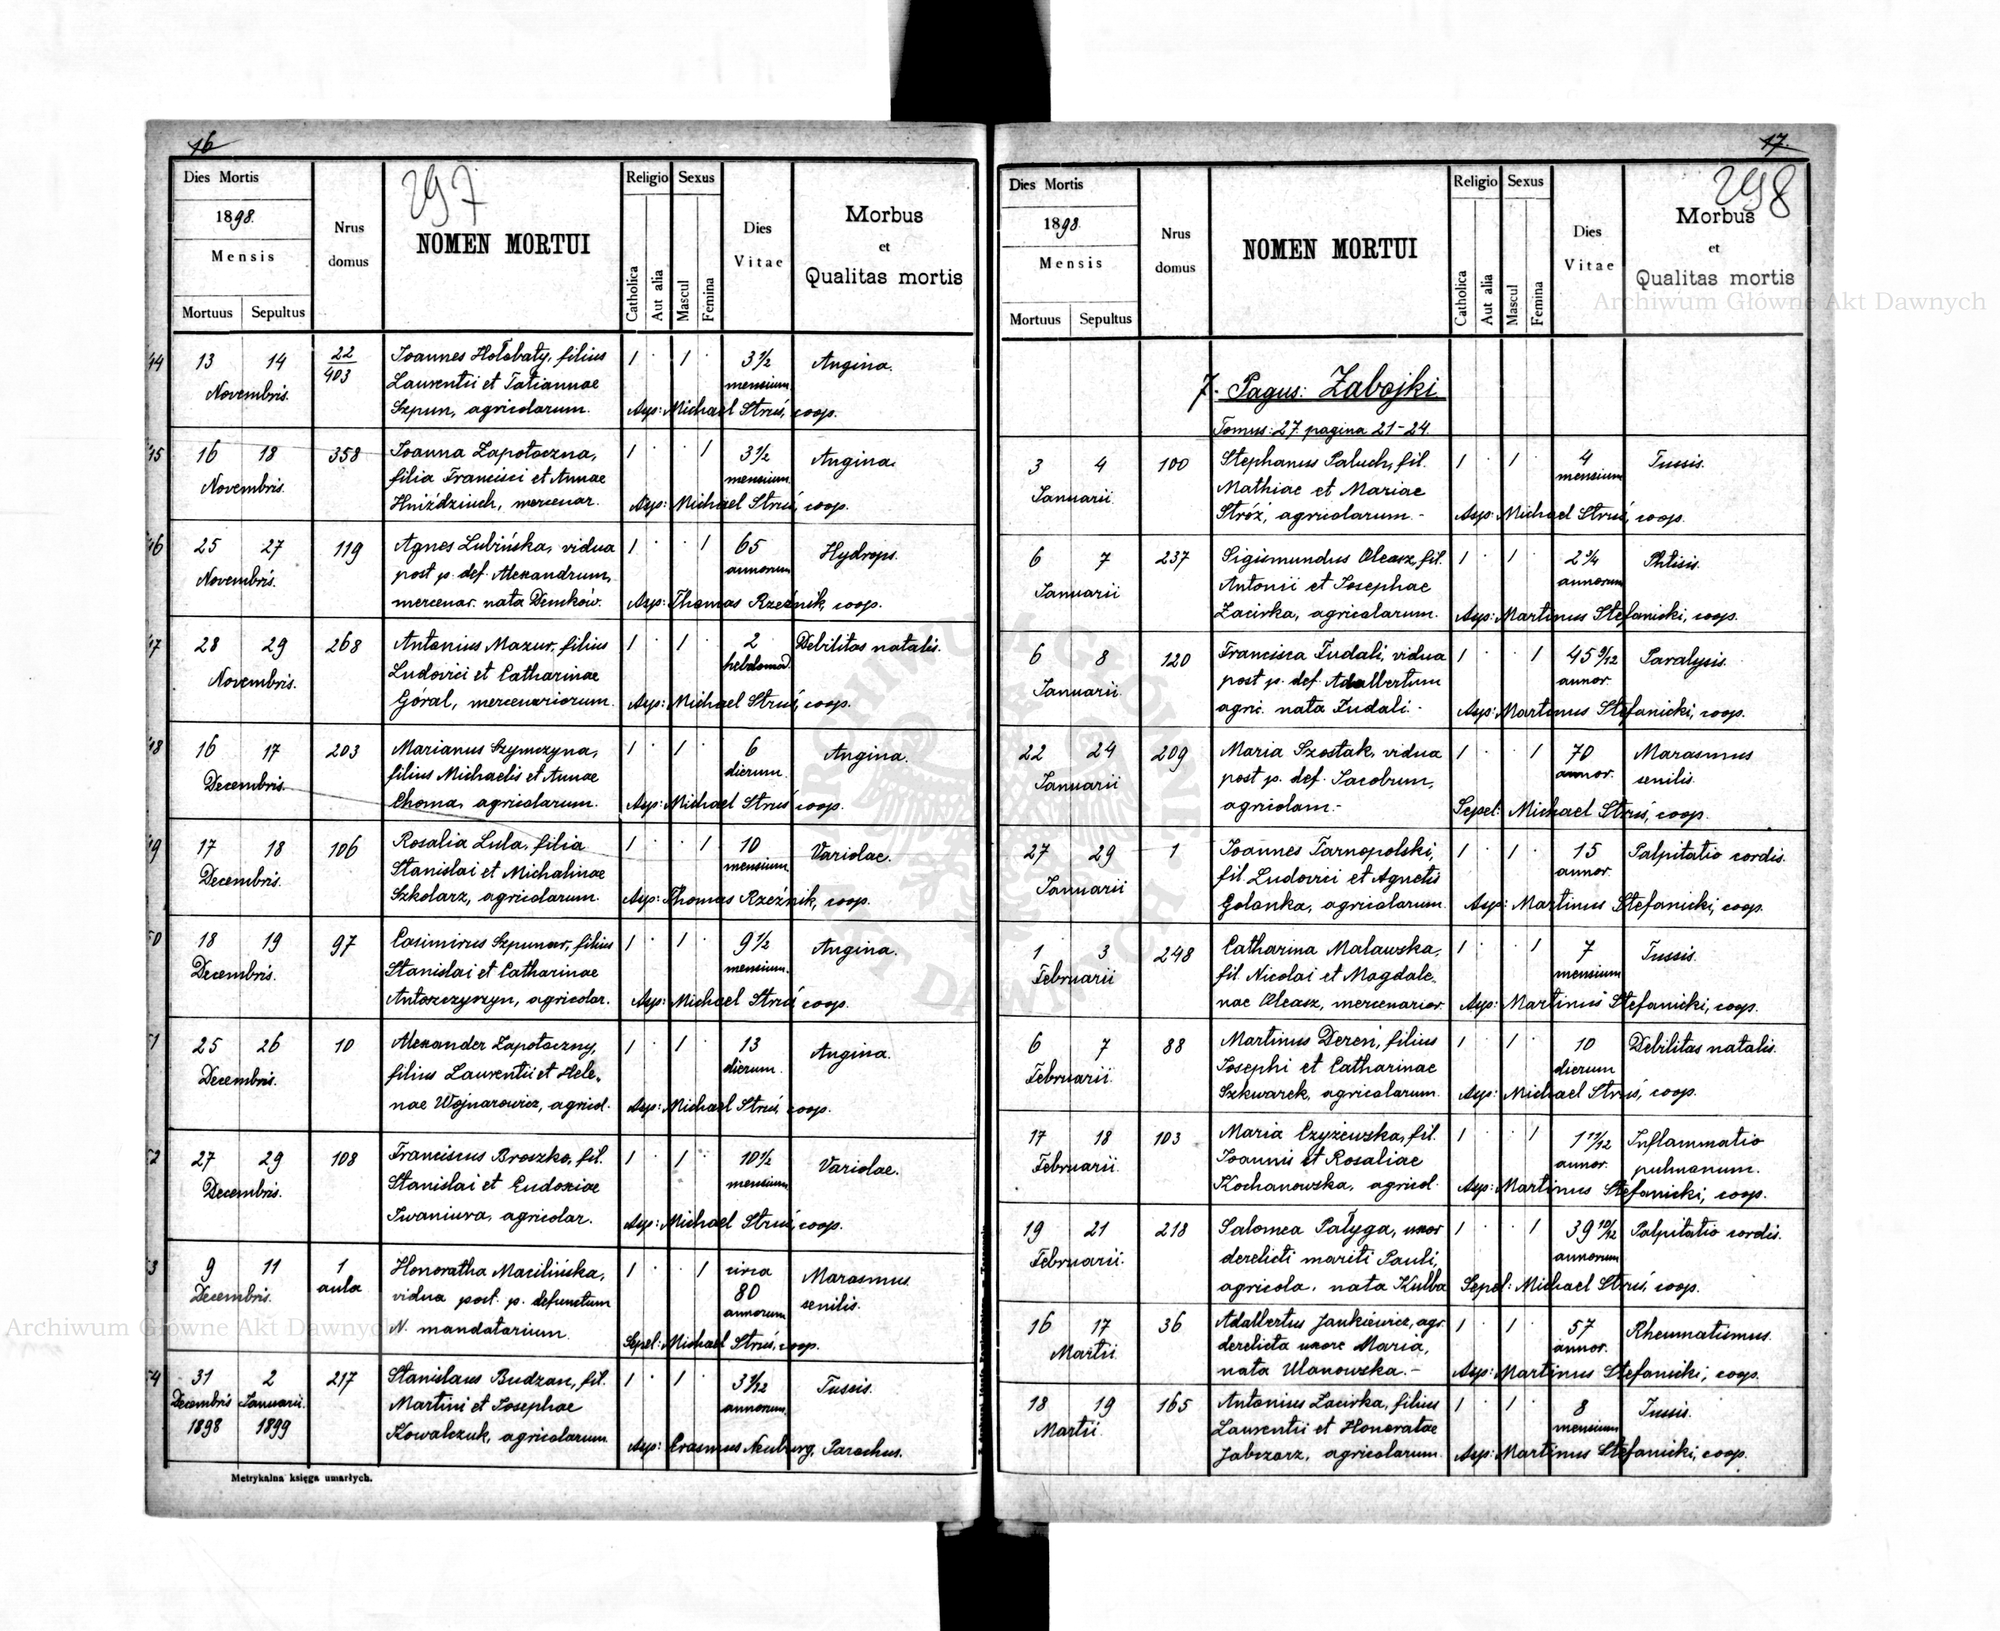 16
297
Dies Mortis
1898.
Mensis
Mortuus Sepultus
Nrus domus
NOMEN MORTUI
Religio
Catholica
Aut alia
Sexus
Mascul
Femina
Dies Vitae
Morbus
et
Qualitas mortis
44 13 14 22/403 Joannes Hołobaty, filius 1 · 1 · 3 1/2 Angina.
Novembris. Laurentii et Tatiannae mensium
Szpun, agricolarum. Asp: Michael Struś, coop.
45 16 18 358 Joanna Zapotoczna, 1 · · 1 3 1/2 Angina.
Novembris. filia Francisci et Annae mensium
Hniździuch, mercenar. Asp: Michael Struś, coop.
46 25 27 119 Agnes Lubińska, vidua 1 · · 1 65 Hydrops.
Novembris. post p. def. Alexandrum, annorum
mercenar. nata Demków. Asp: Thomas Rzeźnik, coop.
47 28 29 268 Antonius Mazur, filius 1 · 1 · 2 Debilitas natalis.
Novembris. Ludovici et Catharinae hebdomad.
Góral, mercenariorum. Asp: Michael Struś, coop.
48 16 17 203 Marianus Szymczyna, 1 · 1 · 6 Angina.
Decembris. filius Michaelis et Annae dierum.
Choma, agricolarum. Asp: Michael Struś coop.
49 17 18 106 Rosalia Lula, filia 1 · · 1 10 Variolae.
Decembris. Stanislai et Michalinae mensium
Szkolarz, agricolarum. Asp: Thomas Rzeźnik, coop.
50 18 19 97 Casimirus Szpunar, filius 1 · 1 · 9 1/2 Angina.
Decembris. Stanislai et Catharinae mensium.
Antoszczyszyn, agricolar. Asp: Michael Struś coop.
51 25 26 10 Alexander Zapotoczny, 1 · 1 · 13 Angina.
Decembris. filius Laurentii et Hele- dierum.
nae Wojnarowicz, agricol. Asp: Michael Struś, coop.
52 27 29 108 Franciscus Broszko, fil. 1 · 1 · 10 1/2 Variolae.
Decembris. Stanislai et Eudoxiae mensium
Iwaniura, agricolar. Asp: Michael Struś, coop.
53 9 11 1 Honoratha Macilińska, 1 · · 1 circa Marasmus
Decembris. aula vidua post. p. defunctum 80 senilis.
N. mandatarium. annorum
Sepel: Michael Struś, coop.
54 31 2 217 Stanislaus Budzan, fil. 1 · 1 · 3 1/12 Tussis.
Decembris Januarii. Martini et Josephae annorum.
1898 1899 Kowalczuk, agricolarum. Asp: Erasmus Neuburg, Parochus.
Metrykalna księga umarłych.
17.
298
Dies Mortis
1898.
Mensis
Mortuus Sepultus
Nrus domus
NOMEN MORTUI
Religio
Catholica
Aut alia
Sexus
Mascul
Femina
Dies Vitae
Morbus
et
Qualitas mortis
7. Pagus: Zabojki
Tomus: 27. pagina 21-24.
3 4 100 Stephanus Paluch, fil. 1 · 1 · 4 Tussis.
Januarii. Mathiae et Mariae mensium
Stróż, agricolarum.- Asp: Michael Struś, coop.
6 7 237 Sigismundus Oleasz, fil. 1 · 1 · 2 3/4 Phtisis.
Januarii Antonii et Josephae annorum
Zacirka, agricolarum. Asp: Martinus Stefanicki, coop.
6 8 120 Francisca Fudali, vidua 1 · · 1 45 9/12 Paralysis.
Januarii. post p. def. Adalbertum annor.
agric. nata Fudali.- Asp: Martinus Stefanicki, coop.
22 24 209 Maria Szostak, vidua 1 · · 1 70 Marasmus
Januarii post p. def. Jacobum, annor. senilis.
agricolam.- Sepel: Michael Struś, coop.
27 29 1 Joannes Tarnopolski, 1 · 1 · 15 Palpitatio cordis.
Januarii fil. Ludovici et Agnetis annor.
Golonka, agricolarum. Asp: Martinus Stefanicki, coop.
1 3 248 Catharina Malawska, 1 · · 1 7 Tussis.
Februarii fil. Nicolai et Magdale- mensium
nae Oleasz, mercenarior. Asp: Martinus Stefanicki, coop.
6 7 88 Martinus Dereń, filius 1 · 1 · 10 Debilitas natalis.
Februarii. Josephi et Catharinae dierum
Szkwarek, agricolarum. Asp: Michael Struś, coop.
17 18 103 Maria Czyżewska, fil. 1 · · 1 1 11/12 Inflammatio
Februarii. Joannis et Rosaliae annor. pulmonum.
Kochanowska, agricol. Asp: Martinus Stefanicki, coop.
19 21 218 Salomea Pałyga, uxor 1 · · 1 39 10/12 Palpitatio cordis.
Februarii. derelicti mariti Pauli, annorum
agricola, nata Kulba Sepel: Michael Struś, coop.
16 17 36 Adalbertus Jankiewicz, agr. 1 · 1 · 57 Rheumatismus.
Martii. derelicta uxore Maria, annor.
nata Ulanowska.- Asp: Martinus Stefanicki, coop.
18 19 165 Antonius Zacirka, filius 1 · 1 · 8 Tussis.
Martii. Laurentii et Honoratae mensium
Jabczarz, agricolarum. Asp: Martinus Stefanicki, coop.
Archiwum Główne Akt Dawnych
Archiwum Główne Akt Dawnych
ARCHIWUM GŁÓWNE AKT DAWNYCH